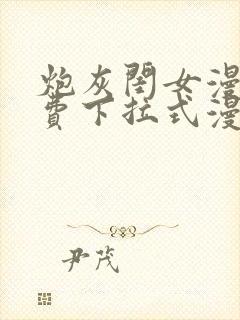 炮灰閨女漫
費下拉式漫
尹茂